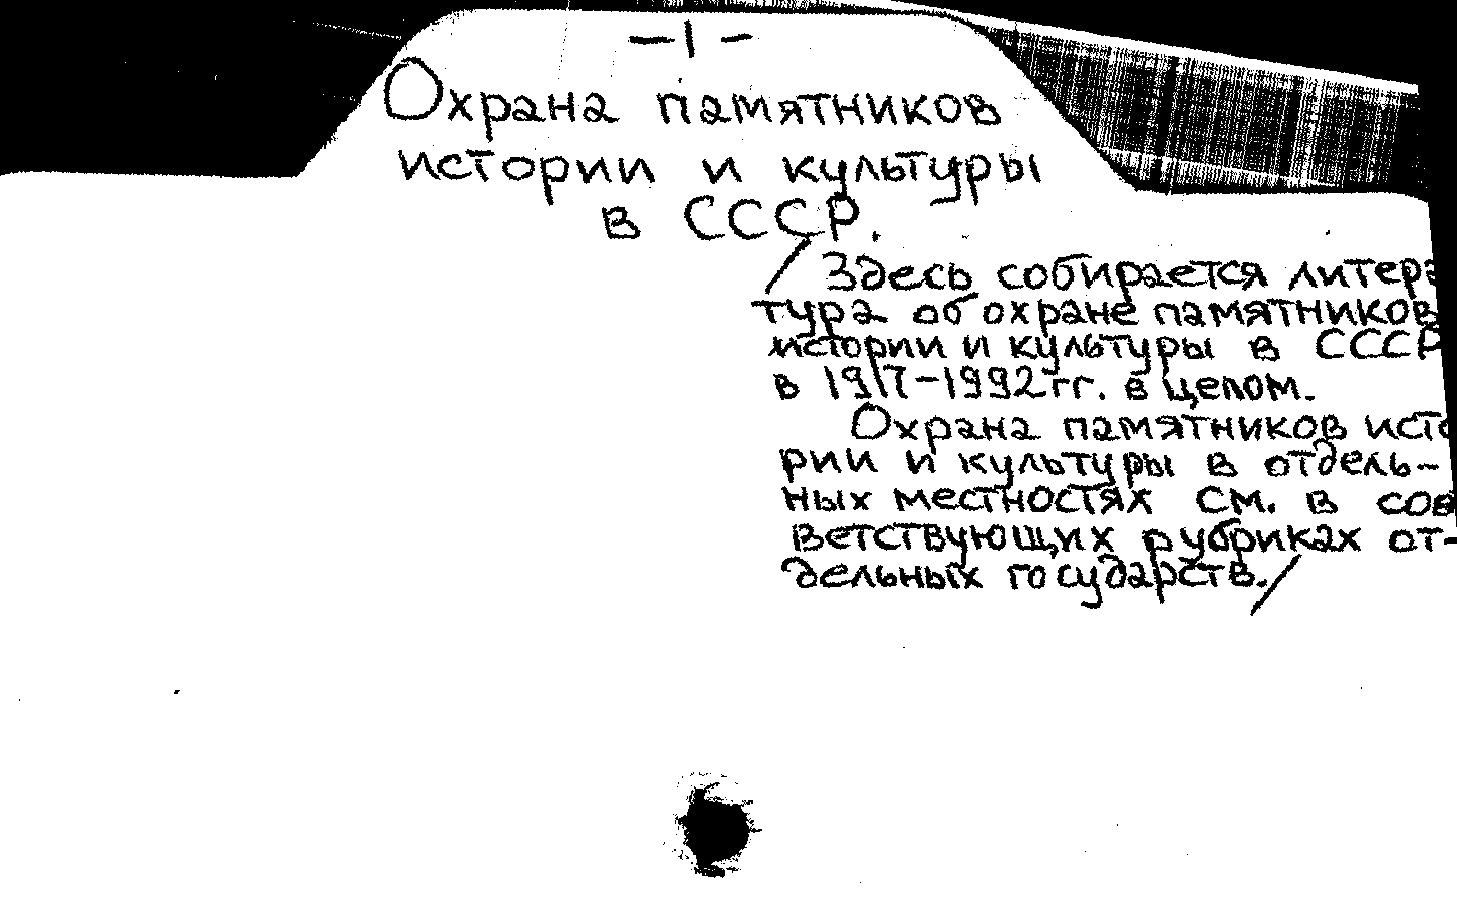 -1-
Охрана памятников
истории и культуры
в СССР.
/Здесь собирается литера
тура об охране памятников
истории и культуры в СССР
в 1917-1992 гг. в целом.
Охрана памятников исто
рии и культуры в отдель-
ных местностях см. в соо
ветствующих рубриках от-
дельных государств./